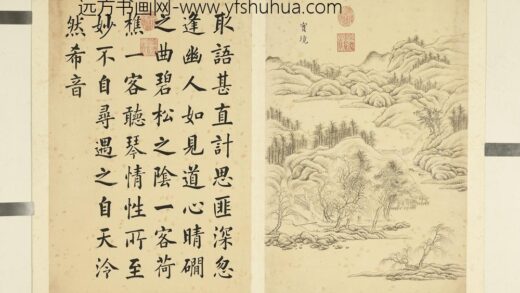 远方书画网-www.yfshuhua.com
取語甚直計思匪深忽
逢幽人如見道心晴磵
之曲碧松之陰一客荷
樵一客聽琴情性所至
妙不自尋遇之自天泠
然希音
實境